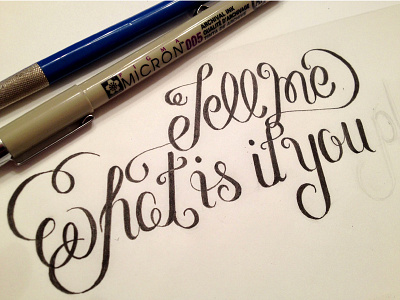 SAKURA
MICRON 005
ARCHIVAL INK
Tell me
What is it you
pl